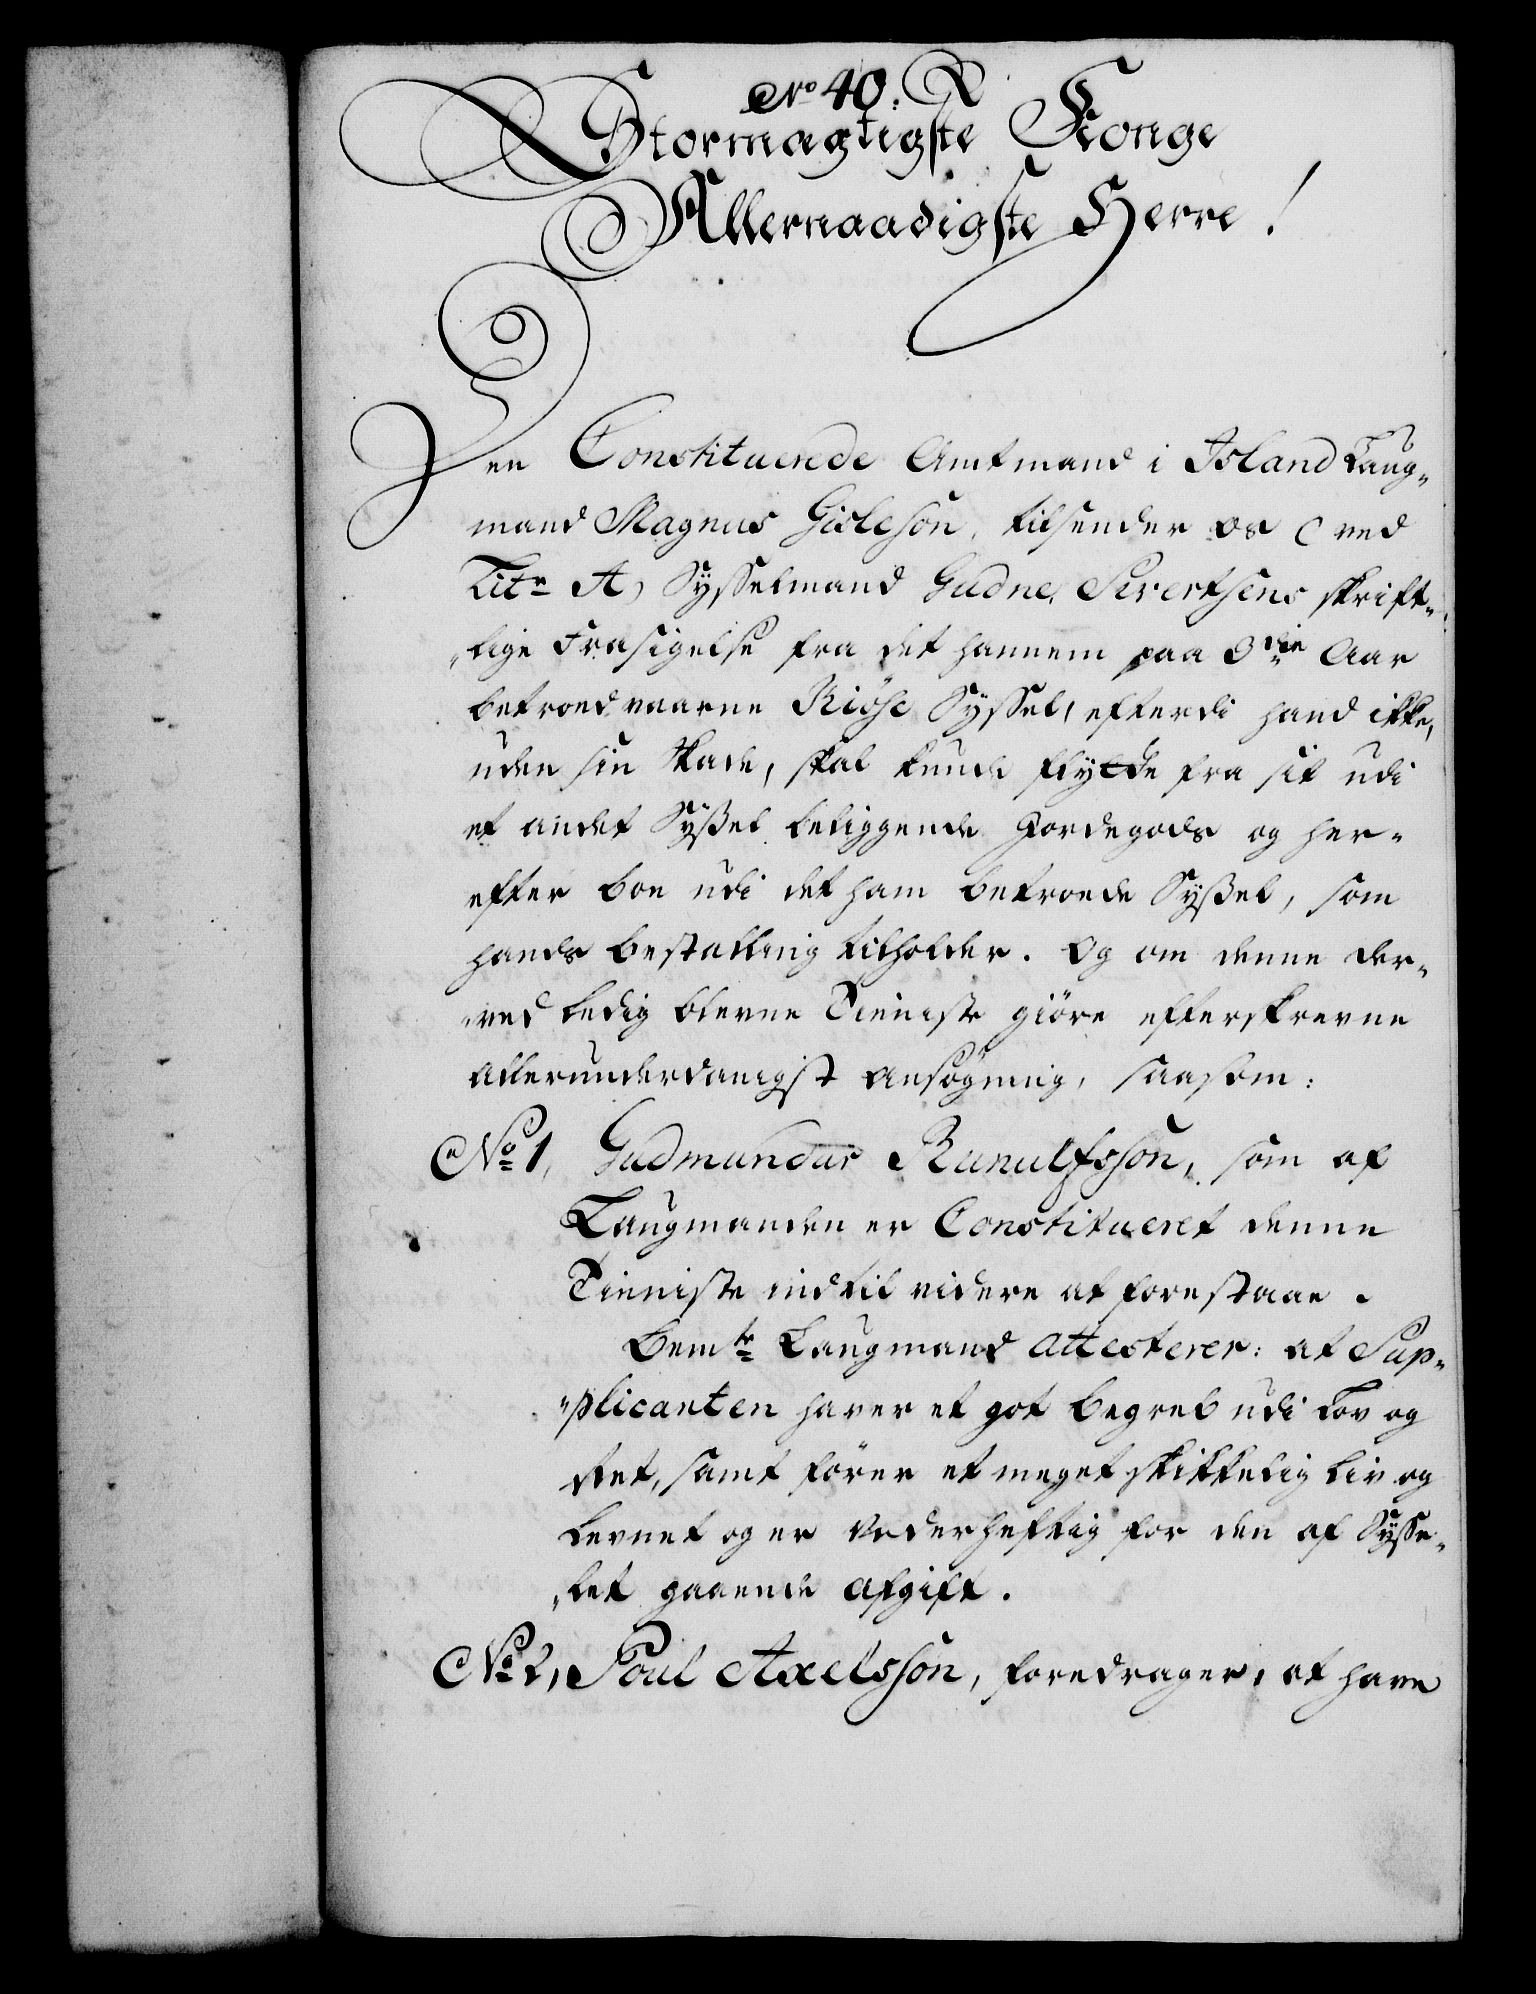 No 40. R
Stormægtigste Konge
Allernaadigste Herre!
Den Constituerede Amtmand i Island Laug-
mand Magnus Gisleson, tilsender os (ved
Litr A) Sysselmand Gudne Sivertsens skrift-
lige Frasigelse fra det hannem paa 3die Aar
betroed waarne Kiose Syssel, efterdi hand ikke,
uden sin Skade, skal kunde flytte fra sit udi
et andet Syssel beliggende Jordegods og her-
efter boe udi det ham betroede Syssel, som
hands bestalling tilholder. Og om denne der-
ved ledig blevne Tieniste giöre efterskrevne
allerunderdanigst Ansögning, saasom:
No 1, Gudmundur Runulfsson, som af
Laugmanden er Constitueret denne
Tieniste indtil videre at forestaae.
Bemte Laugmand attesterer: at Sup-
plicanten haver et got begreb udi Lov og
Ret, samt förer et meget skikkelig Liv og
Levnet og er Vederheftig for den af Sysse-
let gaaende Afgift.
No 2, Poul Axelsson, foredrager, at have